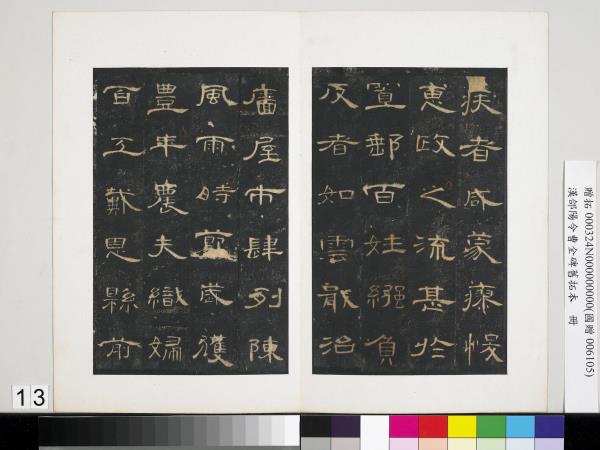 疾者咸蒙瘳悛
惠政之流甚於
置郵百姓繦負
反者如雲戢治
廧屋市肆列陳
風雨時節歲獲
豐年農夫織婦
百工戴恩縣前
贈拓 000324N000000000(國贈 006105)
漢郃陽令曹全碑舊拓本 冊
13